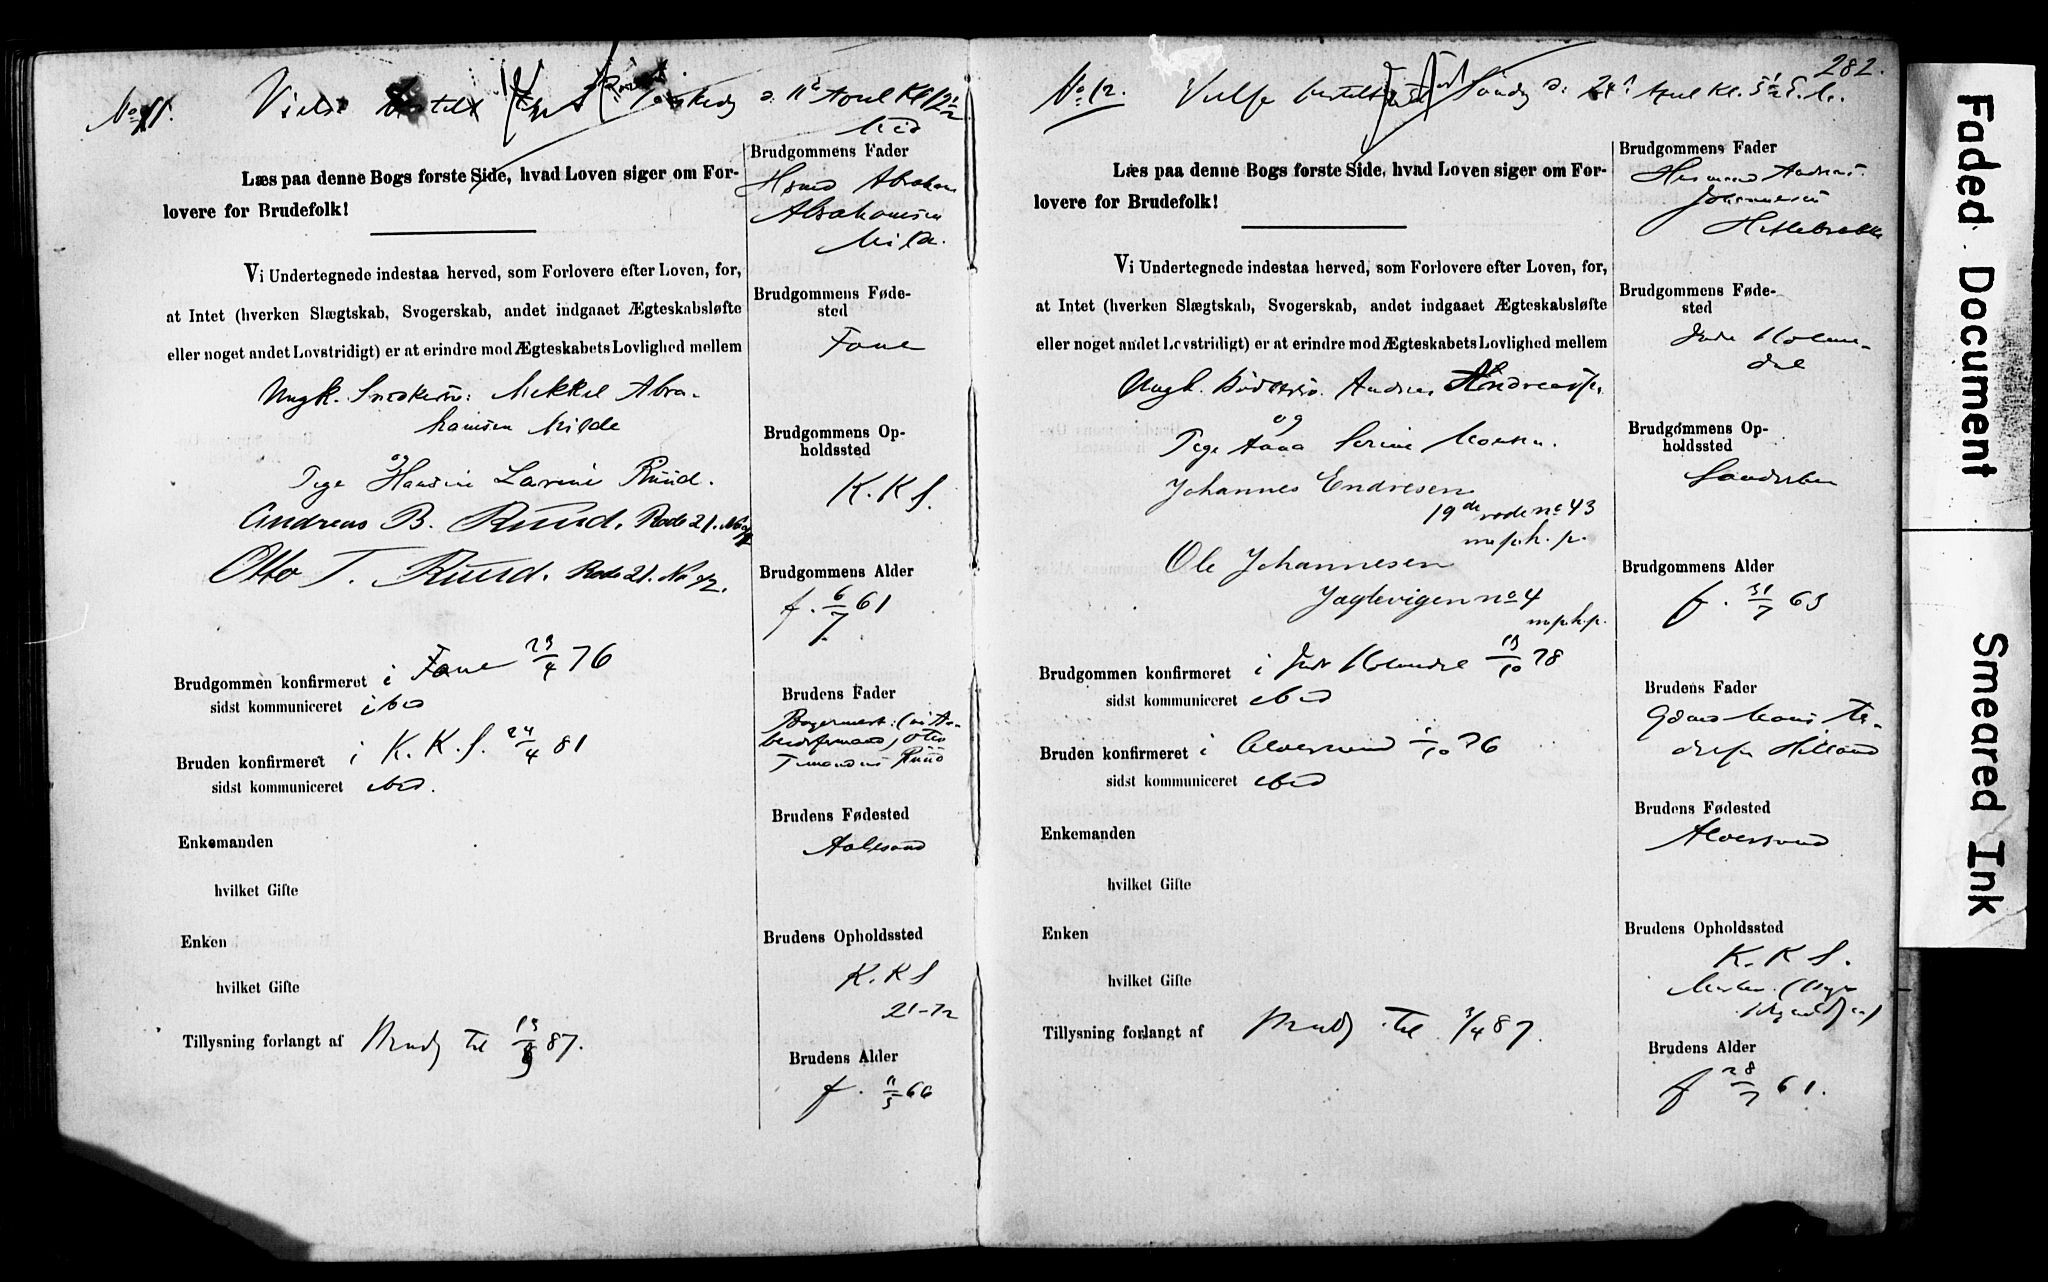 No 11. Vielse bestilt d. 11te April Kl 12 1/2
Læs paa denne Bogs forste Side, hvad Loven siger om For-
lovere for Brudefolk!
Vi Undertegnede indestaa herved, som Forlovere efter Loven, for,
at Intet (hverken Slægtskab, Svogerskab, andet indgaaet Ægteskabsløfte
eller noget andet Lovstridigt) er at erindre mod Ægteskabets Lovlighed mellem
Ungk. Mikkel Abra-
hamsen Milde
og
Pige Hansine Lavine Ruud.
Andreas B. Ruud. Rode 21. No 72
Otto T. Ruud. Rode 21. No 72.
Brudgommen konfirmeret i Fane 23/4 76
sidst kommuniceret ibid
Bruden konfirmeret i K. K. S. 24/4 81
sidst kommuniceret ibid.
Enkemanden
hvilket Gifte
Enken
hvilket Gifte
Tillysning forlangt af Brudg til 13/3 87.
Brudgommens Fader
Abraham
Abrahamsen
Milde.
Brudgommens Føde-
sted
Fane
Brudgommens Op-
holdssted
K. K S.
Brudgommens Alder
f. 6/7 61
Brudens Fader
Otto
Ruud
Brudens Fødested
Aalesund
Brudens Opholdssted
K. K S
21-72
Brudens Alder
f. 11/3 66
282.
No 12. Vielse bestilt Søndag d. 24de April Kl. 5 1/2 E. M.
Læs paa denne Bogs forste Side, hvad Loven siger om For-
lovere for Brudefolk!
Vi Undertegnede indestaa herved, som Forlovere efter Loven, for,
at Intet (hverken Slægtskab, Svogerskab, andet indgaaet Ægteskabsløfte
eller noget andet Lovstridigt) er at erindre mod Ægteskabets Lovlighed mellem
Ungk. Andreas
og
Pige Anna Serine Monsen.
Johannes Endresen
19de rode no 43
m. p. h. p.
Ole Johannesen
Jægtevigen no 4
m. p. h. p.
Brudgommen konfirmeret i Indr Holmedal 13/10 78
sidst kommuniceret ibid
Bruden konfirmeret i Alversund 1/10 76
sidst kommuniceret ibid
Enkemanden
hvilket Gifte
Enken
hvilket Gifte
Tillysning forlangt af Brudg til 3/4 87.
Brudgommens Fader
Andreas
Johannesen
Brudgommens Føde-
sted
Indr Holme-
dal
Brudgommens Op-
holdssted
Sandviken
Brudgommens Alder
f. 31/7 63
Brudens Fader
Gdmd Mons
Hilland
Brudens Fødested
Alversund
Brudens Opholdssted
K. K S.
Brudens Alder
f 28/7 61.
Faded Document
Smeared Ink